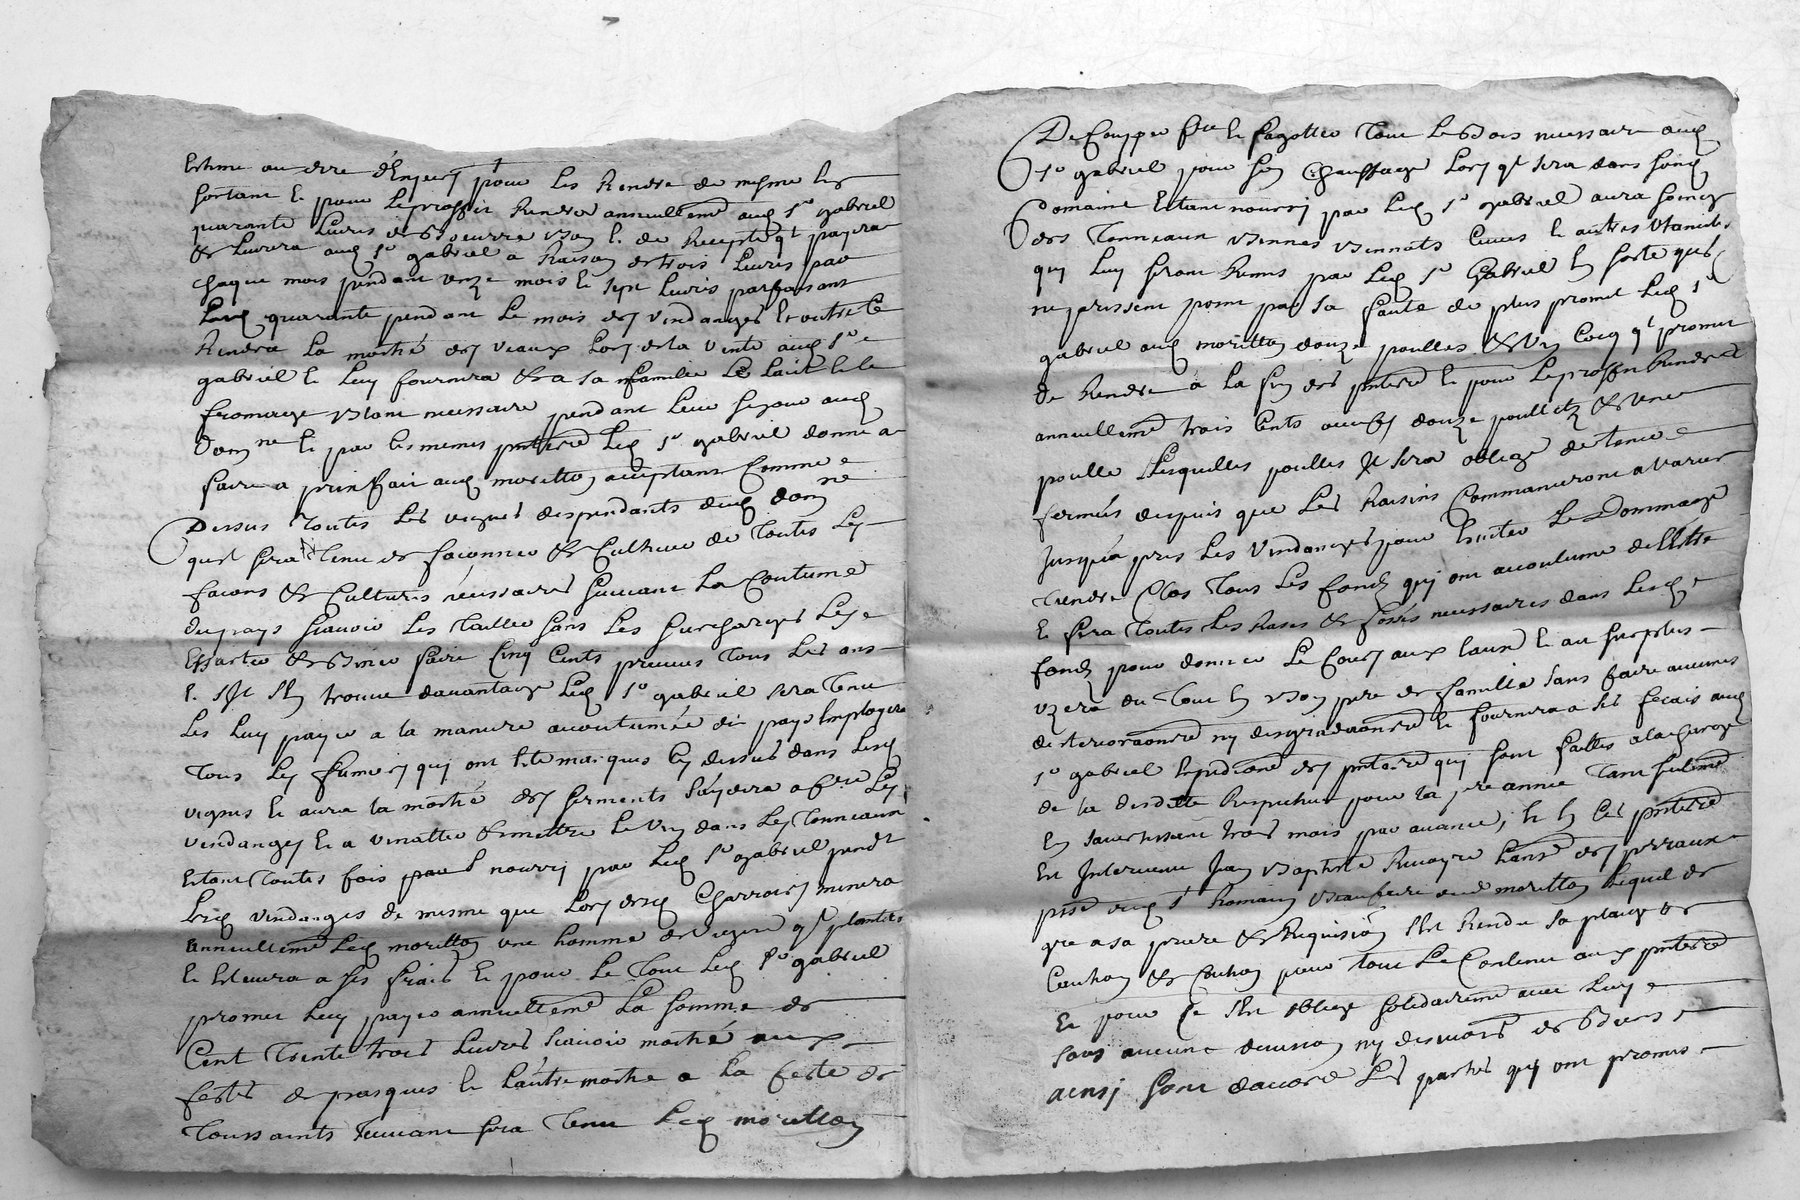 Estimé au dire d'Expers pour les Rendre de mesme les
sortant & pour le proffit Rendra annuellemt audt Sr gabriel
quarante livres de Boeurre Bon & de Recepte qt payera
& livrera audt Sr gabriel a Raison de trois livres par
chaque mois pendant unze mois & sept livres parfaisant
Lesd quarante pendant le mois des vindanges Et outre ce
Rendra la moitié des veaux Lors de la vente audt Sr
gabriel & luy fournira & a sa famille Le Laict & le
fromage Blanc necessaire pendant leur sejour aud
Domne & par ces mesmes pntes Led Sr gabriel donne a
faire a prinffait aud moritton acceptant Comme
Dessus Toutes les vignes despendants dud domne
quil sera Tenu de façonner & Cultiver de Toutes Les
façons & Cultures nécessaires suivant la Coutume
du pays sçavoir les Tailler sans les surcharger Les
Essarter & Biner faire Cinq Cents preuves Tous les ans
& s'Il s'En trouve davantage Led Sr gabriel sera Tenu
les luy payer a la maniere accoutumée du pays Employera
Tous les fumiers qui ont esté marqués cy dessus dans lesd
vignes & aura la moitié des serments S'aydera a fre Les
vindanges & a vinatter & mettre le vin dans les Tonneaux
Estant Toutes fois nourry par Led Sr gabriel pendt
Lesd vindanges de mesme que Lors desd Charrois menera
annuellemt Led moritton une homme de vigne qt plantera
& Eslevera a ses frais & pour le Tout Led Sr gabriel
promet luy payer annuellemt La somme de
Cent Trente trois Livres sçavoir moitié aux
festes de pasques & l'autre moitié a la feste de
Toussaints suivant sera Tenu Led moritton
De Coupper fre & fagotter Tout le Bois necessaire aud
Sr gabriel pour son Chauffage Lors qt sera dans sond
Domaine Estant nourri par Led Sr gabriel aura soing
des Tonneaux Bennes Bennots Cuves & autres Utancilles
qui luy seront Remis par Led Sr Gabriel En sorte quils
ne perissent point par sa faute de plus promet Led Sr
gabriel aud moritton douze poulles & Un Cocq qt promet
de Rendre à la fin des pntes & pour le proffit Rendra
annuellemt trois Cents oeufs douze poullets & une
poulle Lesquelles poulles Il sera obligé de tenir
fermées depuis que les Raisins Commanceront a varier
Jusqu'a pres les Vindanges pour Eviter Le Dommage
Tiendra Clos Tous les fonds qui ont accoutumé de l'Estre
& fera Toutes les Rases & fossés necessaires dans lesd
fonds pour donner Le Cours aux Eaux & au surplus
uzera du Tout En Bon pere de famille sans faire aucunes
deterioraons ny desgradaons & fournira a ses frais aud
Sr gabriel Expedition des pntes qui sont faittes a la charge
de la desditte Respective pour la pre année Tant seulemt
En s'avertissant trois mois par avance; & En Ces pntes
Est Intervenu Jean Baptiste Rivoyre des perraux
psse dud St Romain Beaufrere aud moritton Lequel de
gre a sa priere & Requision s'Est Rendu sa plaige &
Caution & Caution pour tout le Contenu aux pntes
Et pour Ce s'Est obligé solidairemt avec Luy
sans aucune division ny discution de Biens
ainsi sont d'accord Les parties qui ont promis